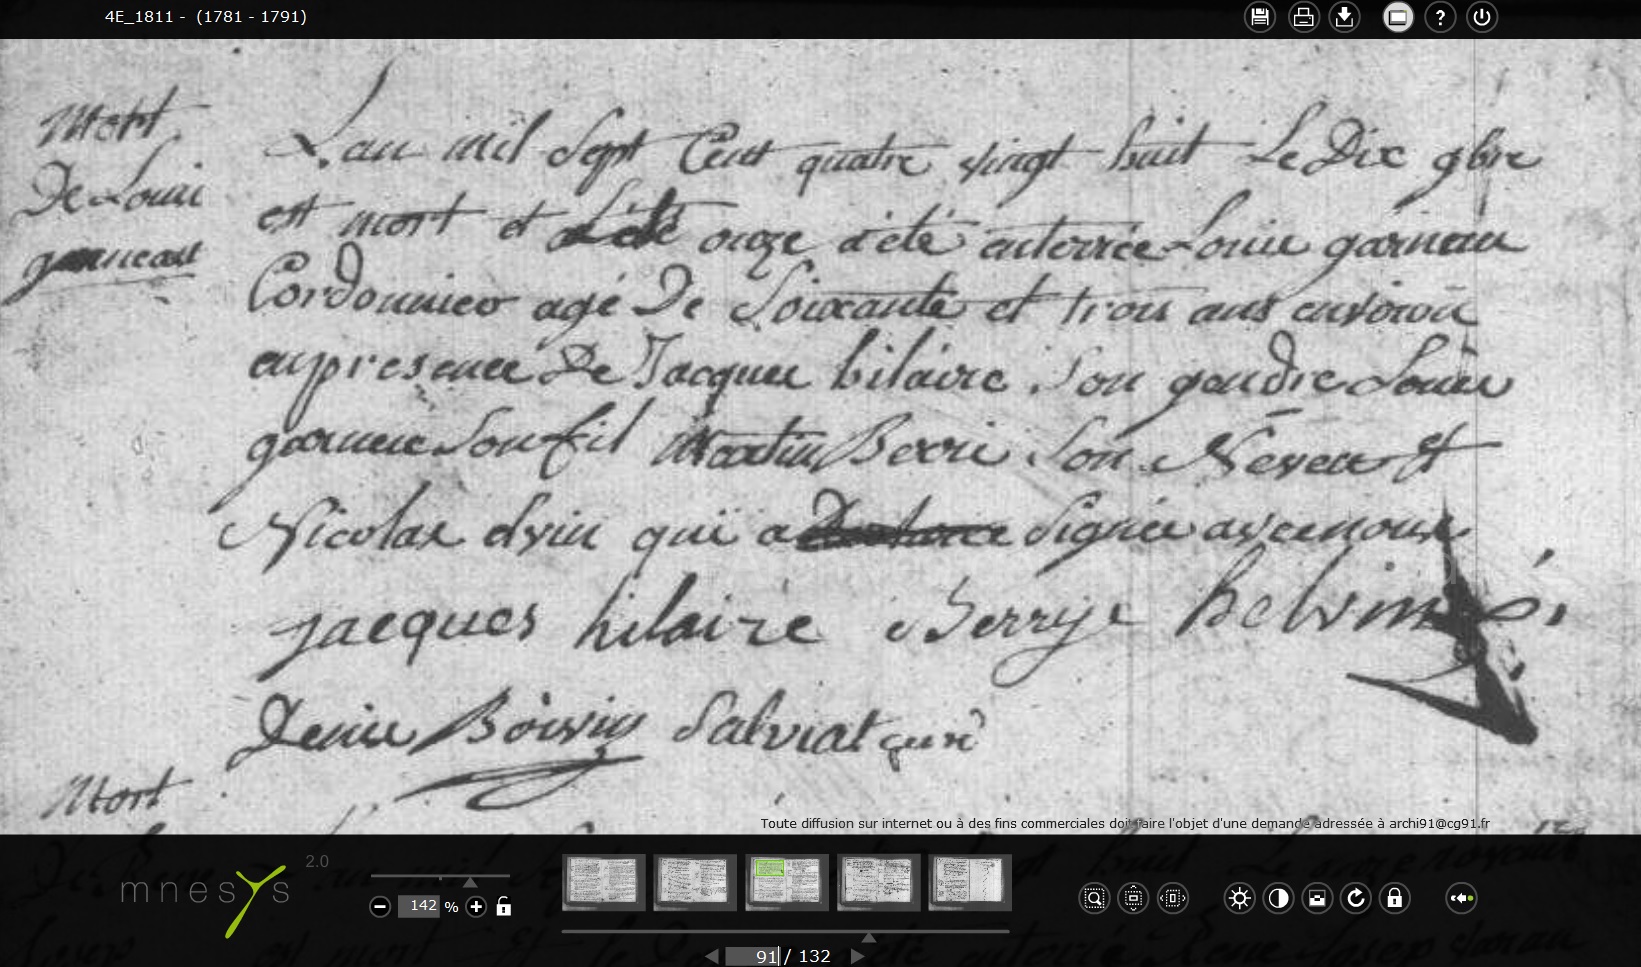 4E_1811 - (1781 - 1791)
Mort
De Loui
garneau
L'an mil sept Cent quatre vingt huit Le Dix 9bre
est mort et onze a été enterrée Louie garneau
Cordonnier agé De Soixante et trois ans environ
enpresence De Jacque hilaire son gendre Louie
garneue Son fil Martin Berri Son Neveu et
Nicolas elvin qui a signée avec nous
jacques hilaire Berrye helvin
Denie Boivin Salviat curé
Mort
Toute diffusion sur internet ou à des fins commerciales doit faire l'objet d'une demande adressée à archi91@cg91.fr
mnesys 2.0
142 %
91 / 132